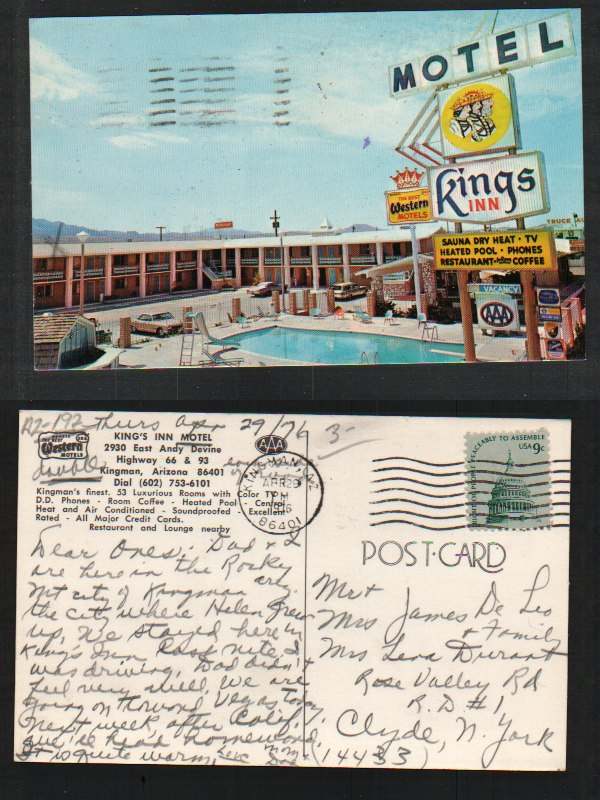 MOTEL
Kings
INN
THE BEST
Western
MOTELS
TRUCK
SAUNA DRY HEAT · TV
HEATED POOL · PHONES
RESTAURANT COFFEE
VACANCY
AAA
A2-192 Thurs Apr 29/76 3-
Best Western
MOTELS
double
KING'S INN MOTEL
2930 East Andy Devine
Highway 66 & 93
Kingman, Arizona 86401
Dial (602) 753-6101
AAA
Kingman's finest. 53 Luxurious Rooms with Color TV
D.D. Phones - Room Coffee - Heated Pool - Central
Heat and Air Conditioned - Soundproofed - Excellent
Rated - All Major Credit Cards.
Restaurant and Lounge nearby
KINGMAN, AZ
APR 29
PM
1976
86401
PEACEABLY TO ASSEMBLE
USA 9c
POST-CARD
Dear Ones; Dad & I
are here in the Rocky
Mt city of Kingman Ariz.
the city where Helen grew
up, We stayed here in
King's Inn last nite, I
was driving, Dad didn't
feel very well. We are
going on thorond Vegas today,
next week, after Calif,
we'll head homeward,
It is quite warm, Mom & Dad
Mr &
Mrs James De Leo
& Family
Mrs Lena Durant
Rose Valley Rd
R.D #1,
Clyde, N. York
(14433)